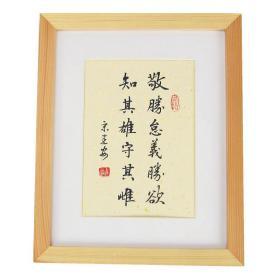 敬勝怠義勝欲
知其雄守其雌